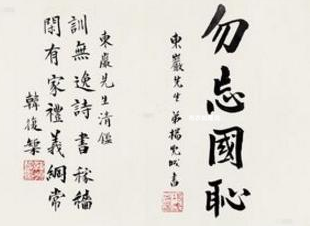 勿忘國恥
東巖先生 弟楊兆成書
東巖先生清鑑
訓無逸詩書稼穡
閑有家禮義綱常
韓復榘